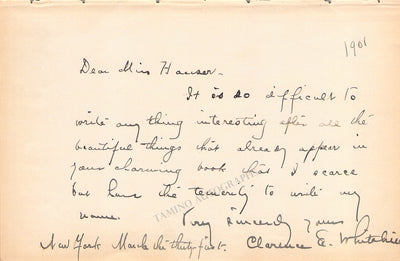 1901
Dear Miss Hauser.
It is so difficult to
write any thing interesting after all the
beautiful things that already appear in
your charming book that I scarce
but have the temerity to write my
name.
Very Sincerely yours
New York March the thirty first. Clarence E. Whitehill
TAMINO AUTOGRAPHS